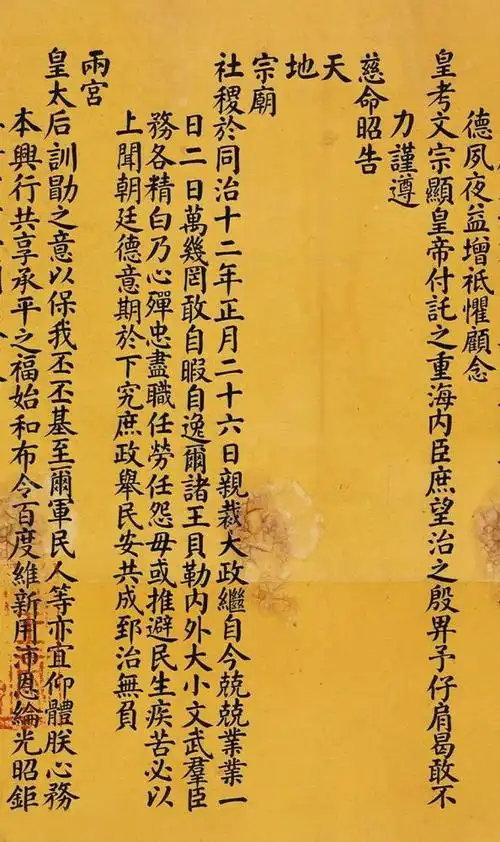 德夙夜益增祗懼顧念
皇考文宗顯皇帝付託之重海内臣庶望治之殷畀予仔肩曷敢不
力謹遵
慈命昭告
天
地
宗廟
社稷於同治十二年正月二十六日親裁大政繼自今兢兢業業一
日二日萬幾罔敢自暇自逸爾諸王貝勒内外大小文武羣臣
務各精白乃心殫忠盡職任勞任怨毋或推避民生疾苦必以
上聞朝廷德意期於下究庶政舉民安共成郅治無負
兩宮
皇太后訓勖之意以保我丕丕基至爾軍民人等亦宜仰體朕心務
本興行共享承平之福始和布令百度維新用沛恩綸光昭鉅